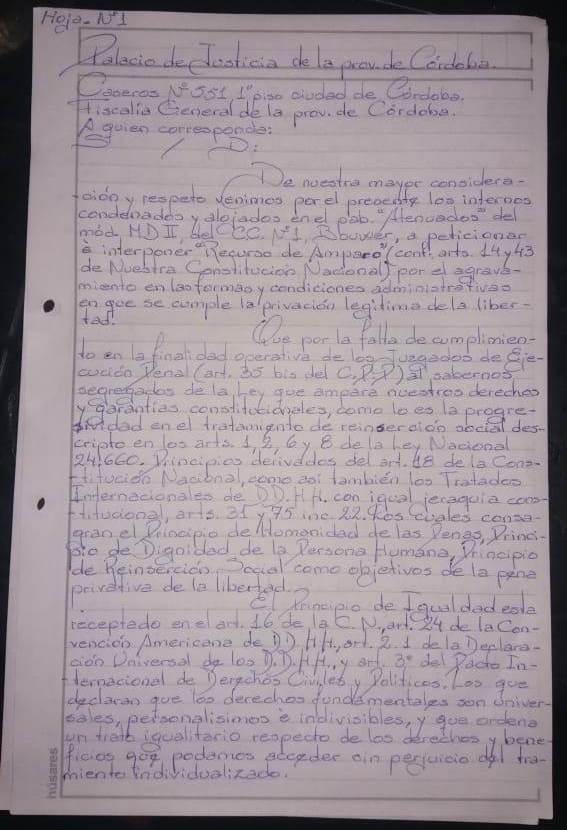 Hoja-Nº1
Palacio de Justicia de la prov. de Córdoba.
Caseros Nº 551 1º piso ciudad de Córdoba.
Fiscalía General de la prov. de Córdoba.
A quien corresponda:
S / D:
De nuestra mayor considera-
ción y respeto venimos por el presente los internos
condenados y alojados en el pab. "Atenuados" del
mód. MD II, del C.C. Nº1, Bouwer, a peticionar
é interponer "Recurso de Amparo" (conf. arts. 14 y 43
de Nuestra Constitución Nacional) por el agrava-
miento en las formas y condiciones administrativas
en que se cumple la privación legitima de la liber-
tad.
Que por la falta de cumplimien-
to en la finalidad operativa de los Juzgados de Eje-
cución Penal (art. 35 bis del C.P.P) al sabernos
segregados de la Ley que ampara nuestros derechos
y garantías constitucionales, como lo es la progre-
sividad en el tratamiento de reinserción social des-
cripto en los arts. 1, 2, 6 y 8 de la Ley Nacional
24.660. Principios derivados del art. 18 de la Cons-
titución Nacional, como así también los Tratados
Internacionales de DD.HH. con igual jeraquia cons-
titucional, arts. 31 y 75 inc. 22. Los cuales consa-
gran el Principio de Humanidad de las Penas, Princi-
pio de Dignidad de la Persona Humana, Principio
de Reinserción Social como objetivos de la pena
privativa de la libertad.
El Principio de Igualdad esta
receptado en el art. 16 de la C.N., art. 24 de la Con-
vención Americana de DD.HH., art. 2.1 de la Deplara-
ción Universal de los D.D.H.H., y art. 3º del Pacto In-
ternacional de Derechos Civiles y Politicos. Los que
declaran que los derechos fundamentales son univer-
sales, personalisimos é indivisibles, y que ordena
un trato igualitario respecto de los derechos y bene-
ficios que podamos acceder sin perjuicio del tra-
miento individualizado.
húsares